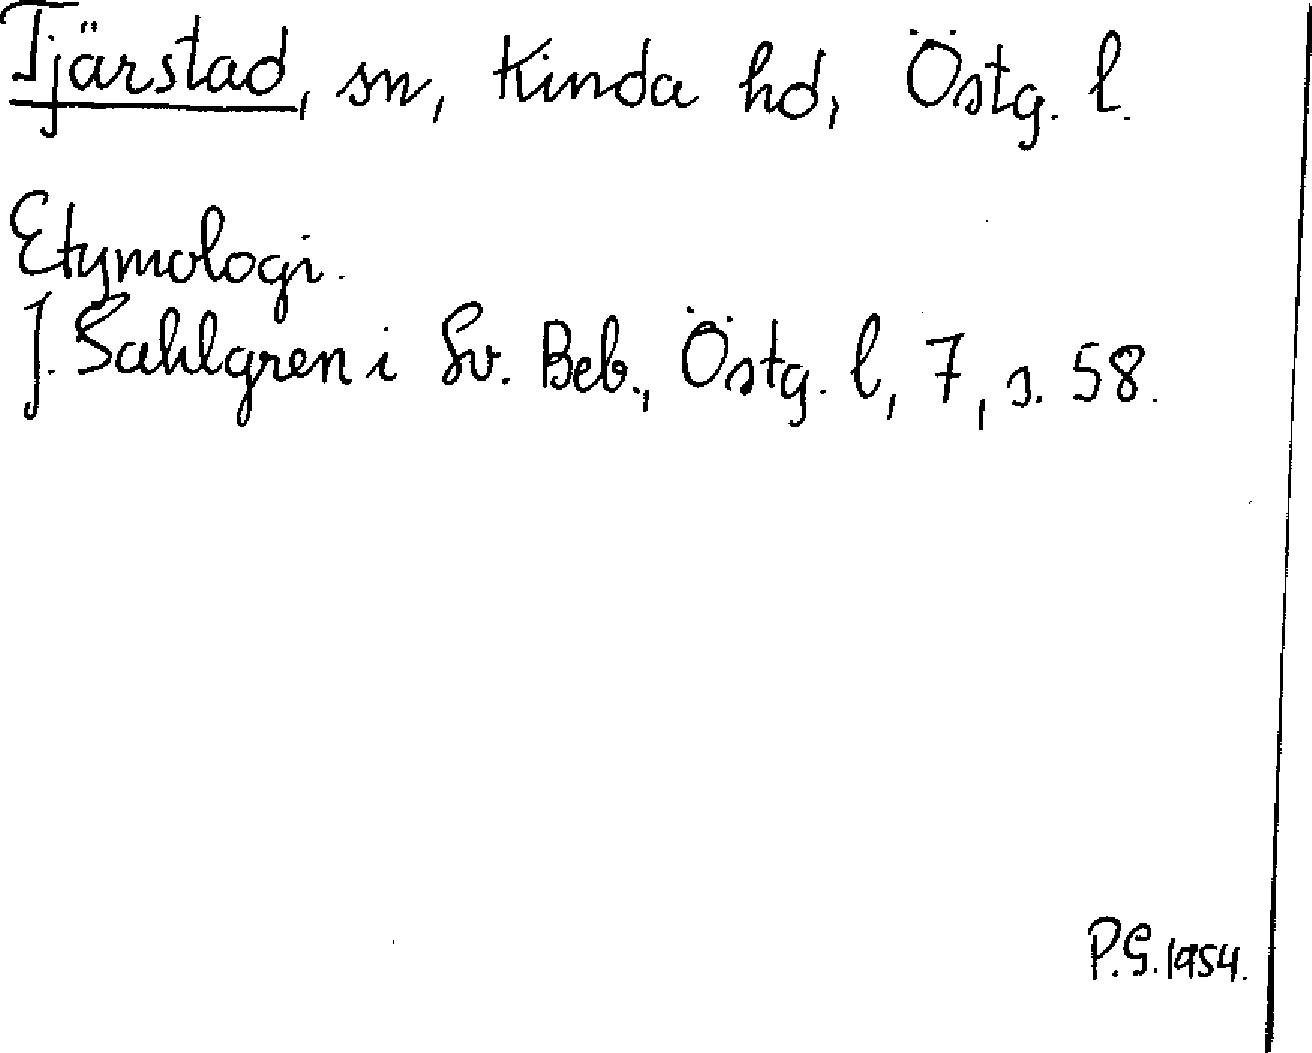 Tjärstad, sn, Kinda hd, Östg. l.
Etymologi.
J. Sahlgren i Sv. Beb., Östg. l, 7, s. 58.
P.G. 1954.